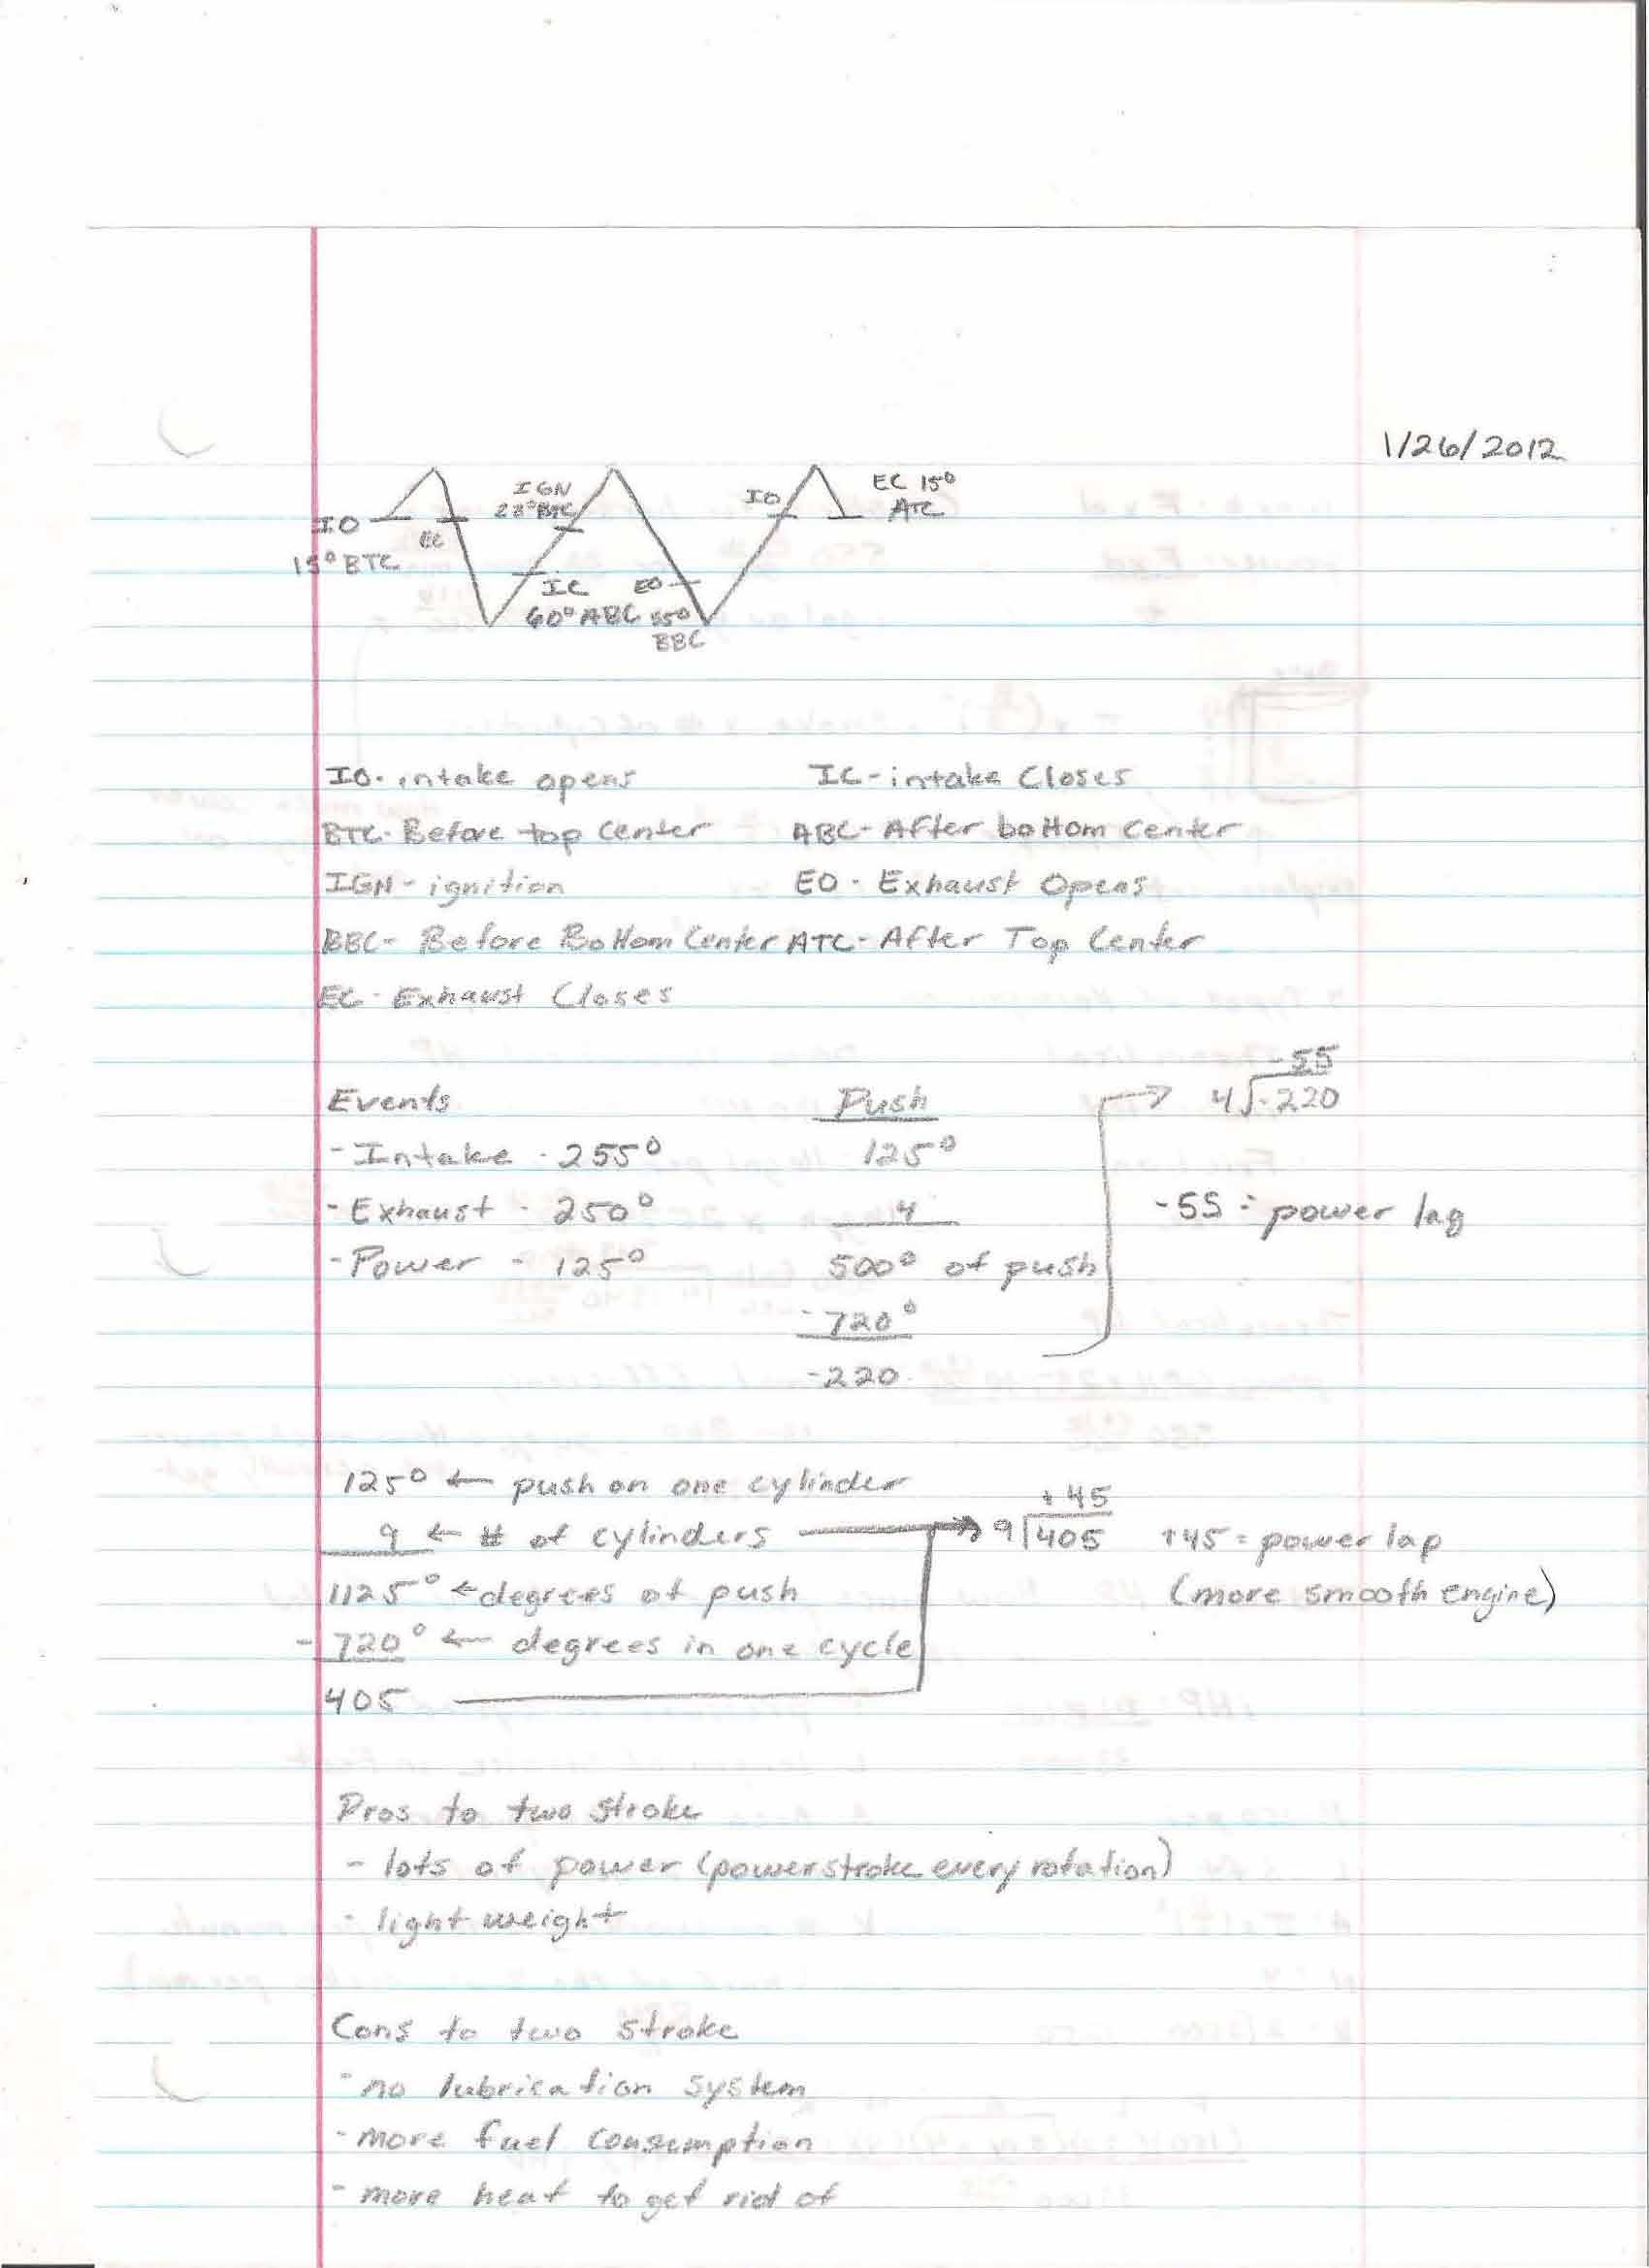 1/26/2012
IO
15° BTC
EC
IGN
BTC
IC
60° ABC
EO
55°
BBC
IO
EC 15°
ATC
IO - intake opens IC - intake Closes
BTC - Before top Center ABC - After bottom Center
IGN - ignition EO - Exhaust Opens
BBC - Before Bottom Center ATC - After Top Center
EC - Exhaust Closes
Events Push
- Intake - 255° 125°
- Exhaust - 250° 4
- Power - 125° 500° of push
-720°
-220
-55
4 -220
-55 = power lag
125° ← push on one cylinder
9 ← # of cylinders
1125° ← degrees of push
- 720° ← degrees in one cycle
405
+45
9 405 +45 = power lap
(more smooth engine)
Pros to two stroke
- lots of power (powerstroke every rotation)
- light weight
Cons to two stroke
- no lubrication system
- more fuel consumption
- more heat to get rid of